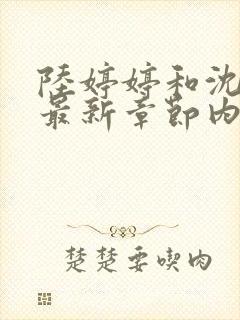 陸婷婷和沈
最新章節內
楚楚要喫肉